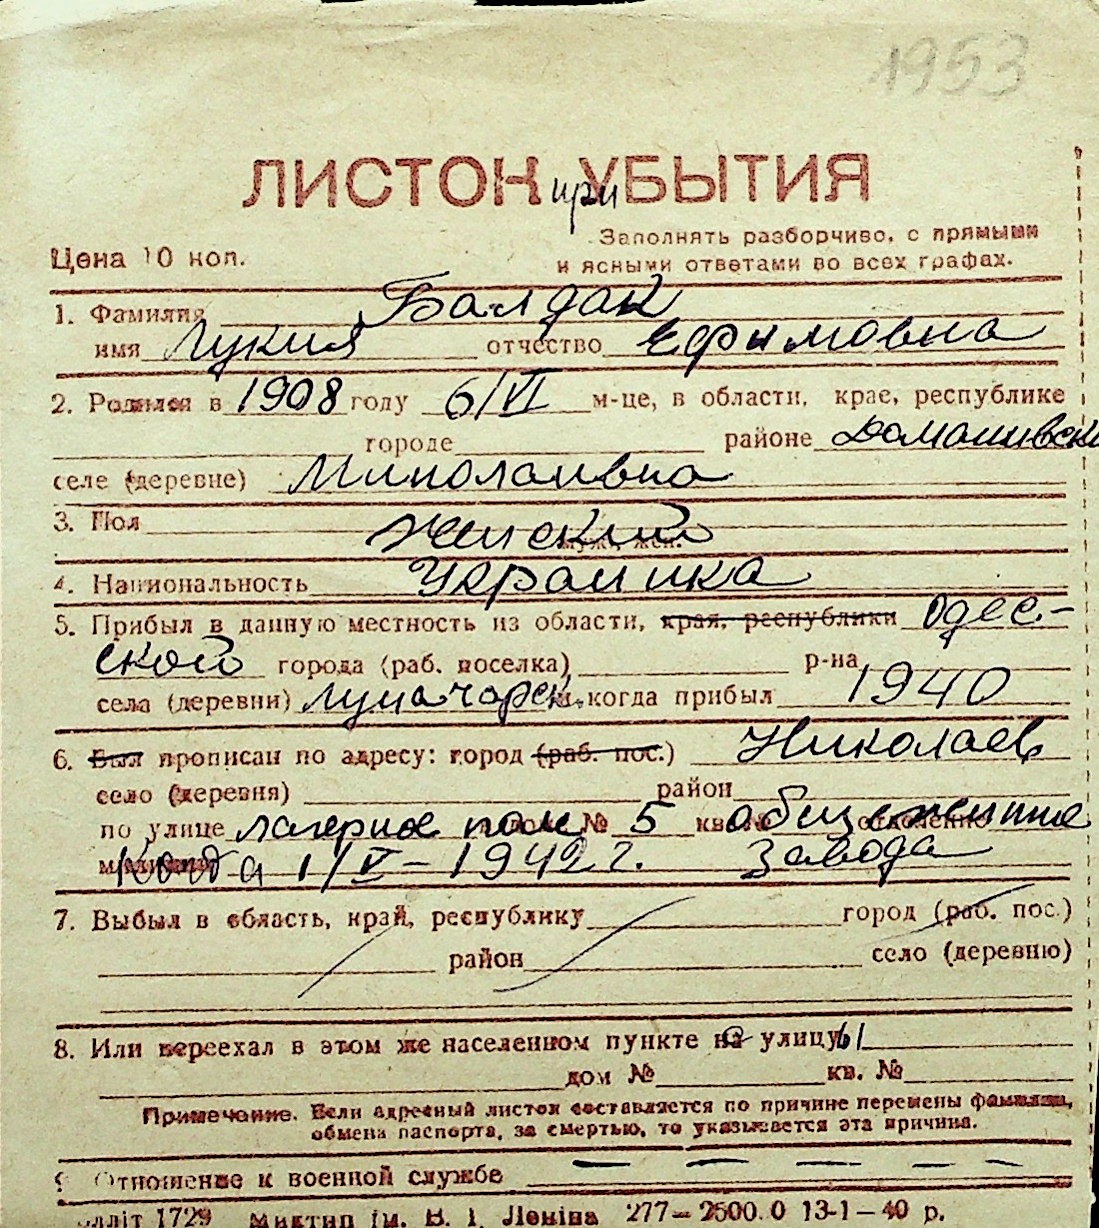 1953
ЛИСТОК при УБЫТИЯ
Цена 10 коп.
Заполнять разборчиво, с прямыми
и ясными ответами во всех графах.
1. Фамилия Балдак
имя Лукия отчество Ефимовна
2. Родился в 1908 году 6/VI м-це, в области, крае, республике
городе районе Доманивск
селе (деревне) Миколаивка
3. Пол Женский
муж., жен.
4. Национальность Украинка
5. Прибыл в данную местность из области, края, республики Одес-
ской города (раб. поселка) р-на
села (деревни) Луначарск. когда прибыл 1940
6. Был прописан по адресу: город (раб. пос.) Николаев
село (деревня) район
по улице лагерное поле № 5 кв. № общежитие
когда 1/V - 1942 г. завода
7. Выбыл в область, край, республику город (раб. пос.)
район село (деревню)
8. Или переехал в этом же населенном пункте на улицу
дом № кв. №
Примечание. Если адресный листок составляется по причине перемены фамилии,
обмена паспорта, за смертью, то указывается эта причина.
9 Отношение к военной службе — — — — —
лліт 1729 Миктип ім. В. І. Леніна 277—2500.0 13-1—40 р.